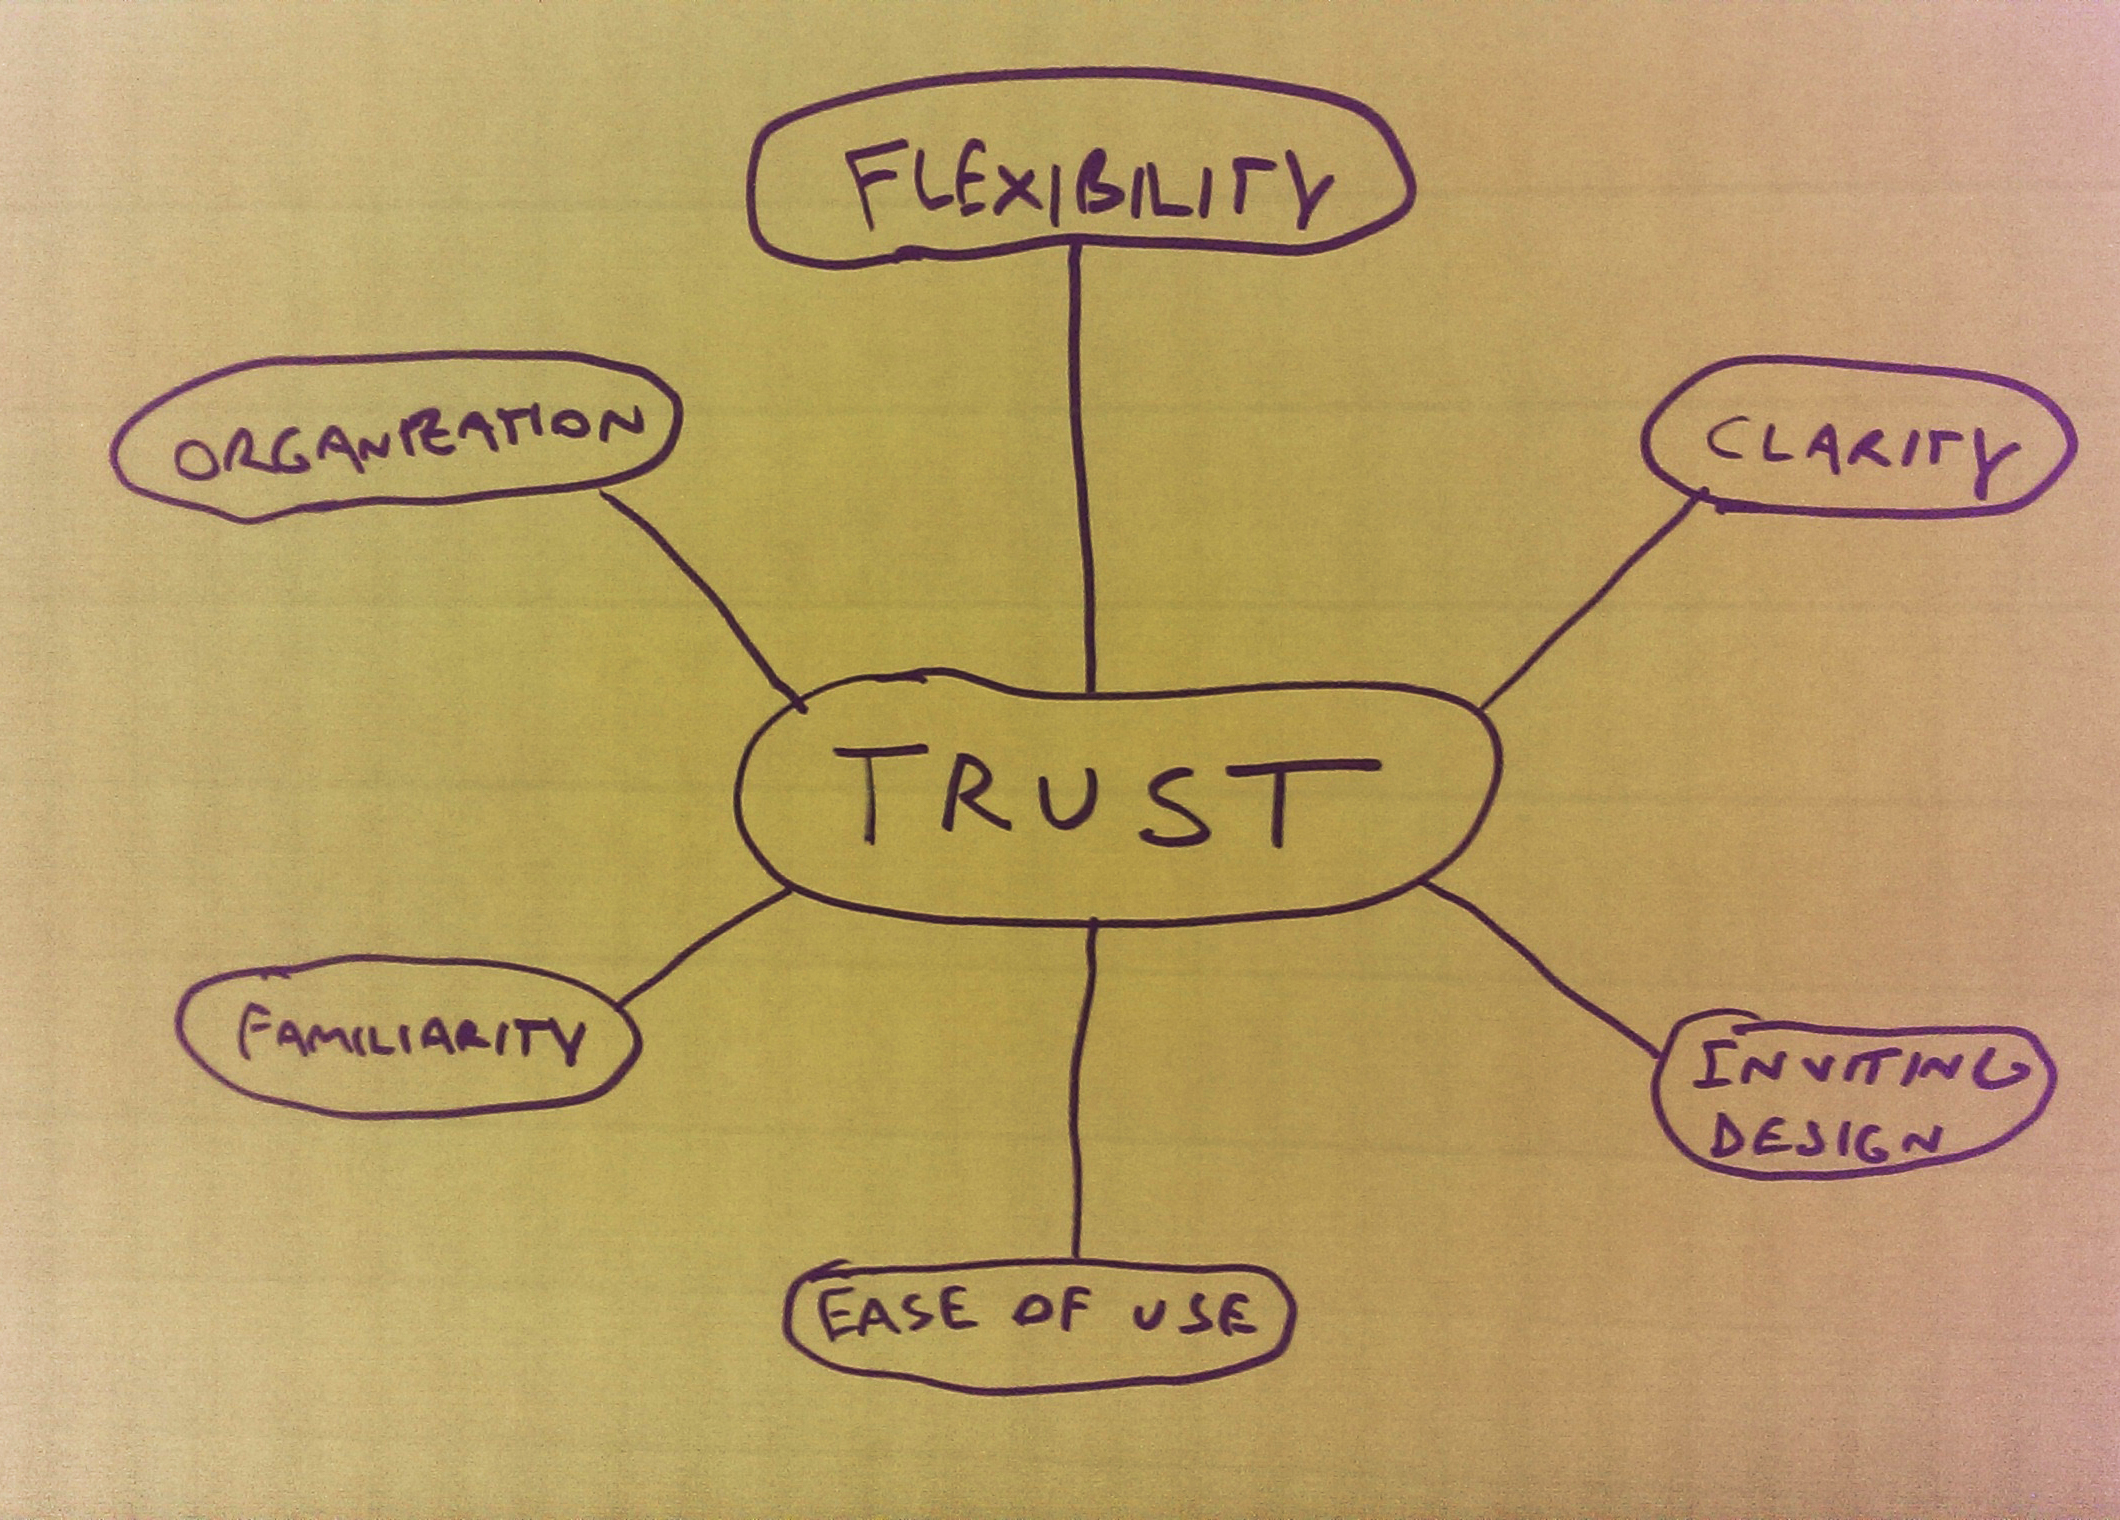 FLEXIBILITY
ORGANIZATION
CLARITY
TRUST
FAMILIARITY
INVITING
DESIGN
EASE OF USE